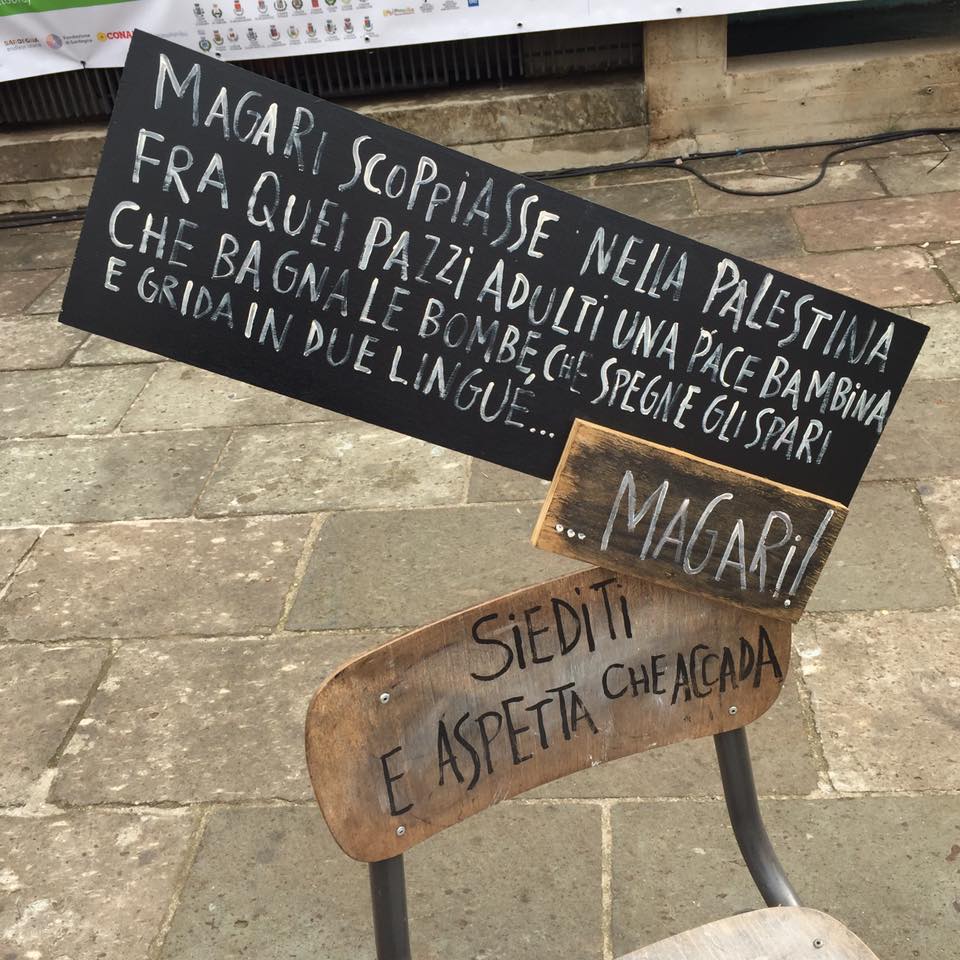 CONAD
MAGARI SCOPPIASSE NELLA PALESTINA
FRA QUEI PAZZI ADULTI UNA PACE BAMBINA
CHE BAGNA LE BOMBE, CHE SPEGNE GLI SPARI
E GRIDA IN DUE LINGUE...
... MAGARI!
SIEDITI
E ASPETTA CHE ACCADA